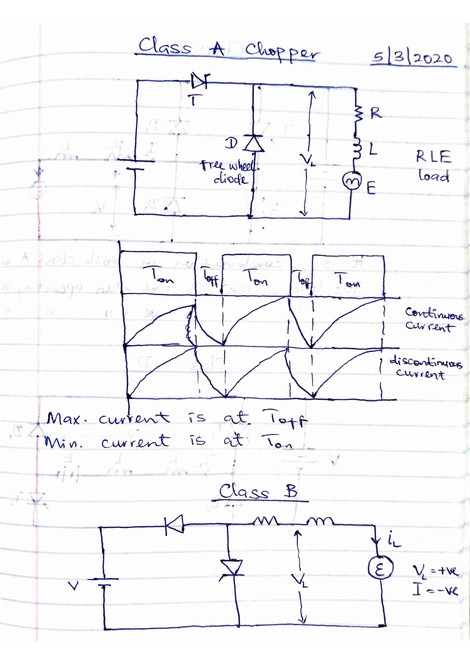 Class A Chopper 5/3/2020
T
R
D
L
RLE
free wheel
VL
load
diode
E
Ton Toff Ton Toff Ton
continuous
current
discontinuous
current
Max. current is at Toff
Min. current is at Ton
Class B
iL
V
VL
E
VL = +ve
I = -ve